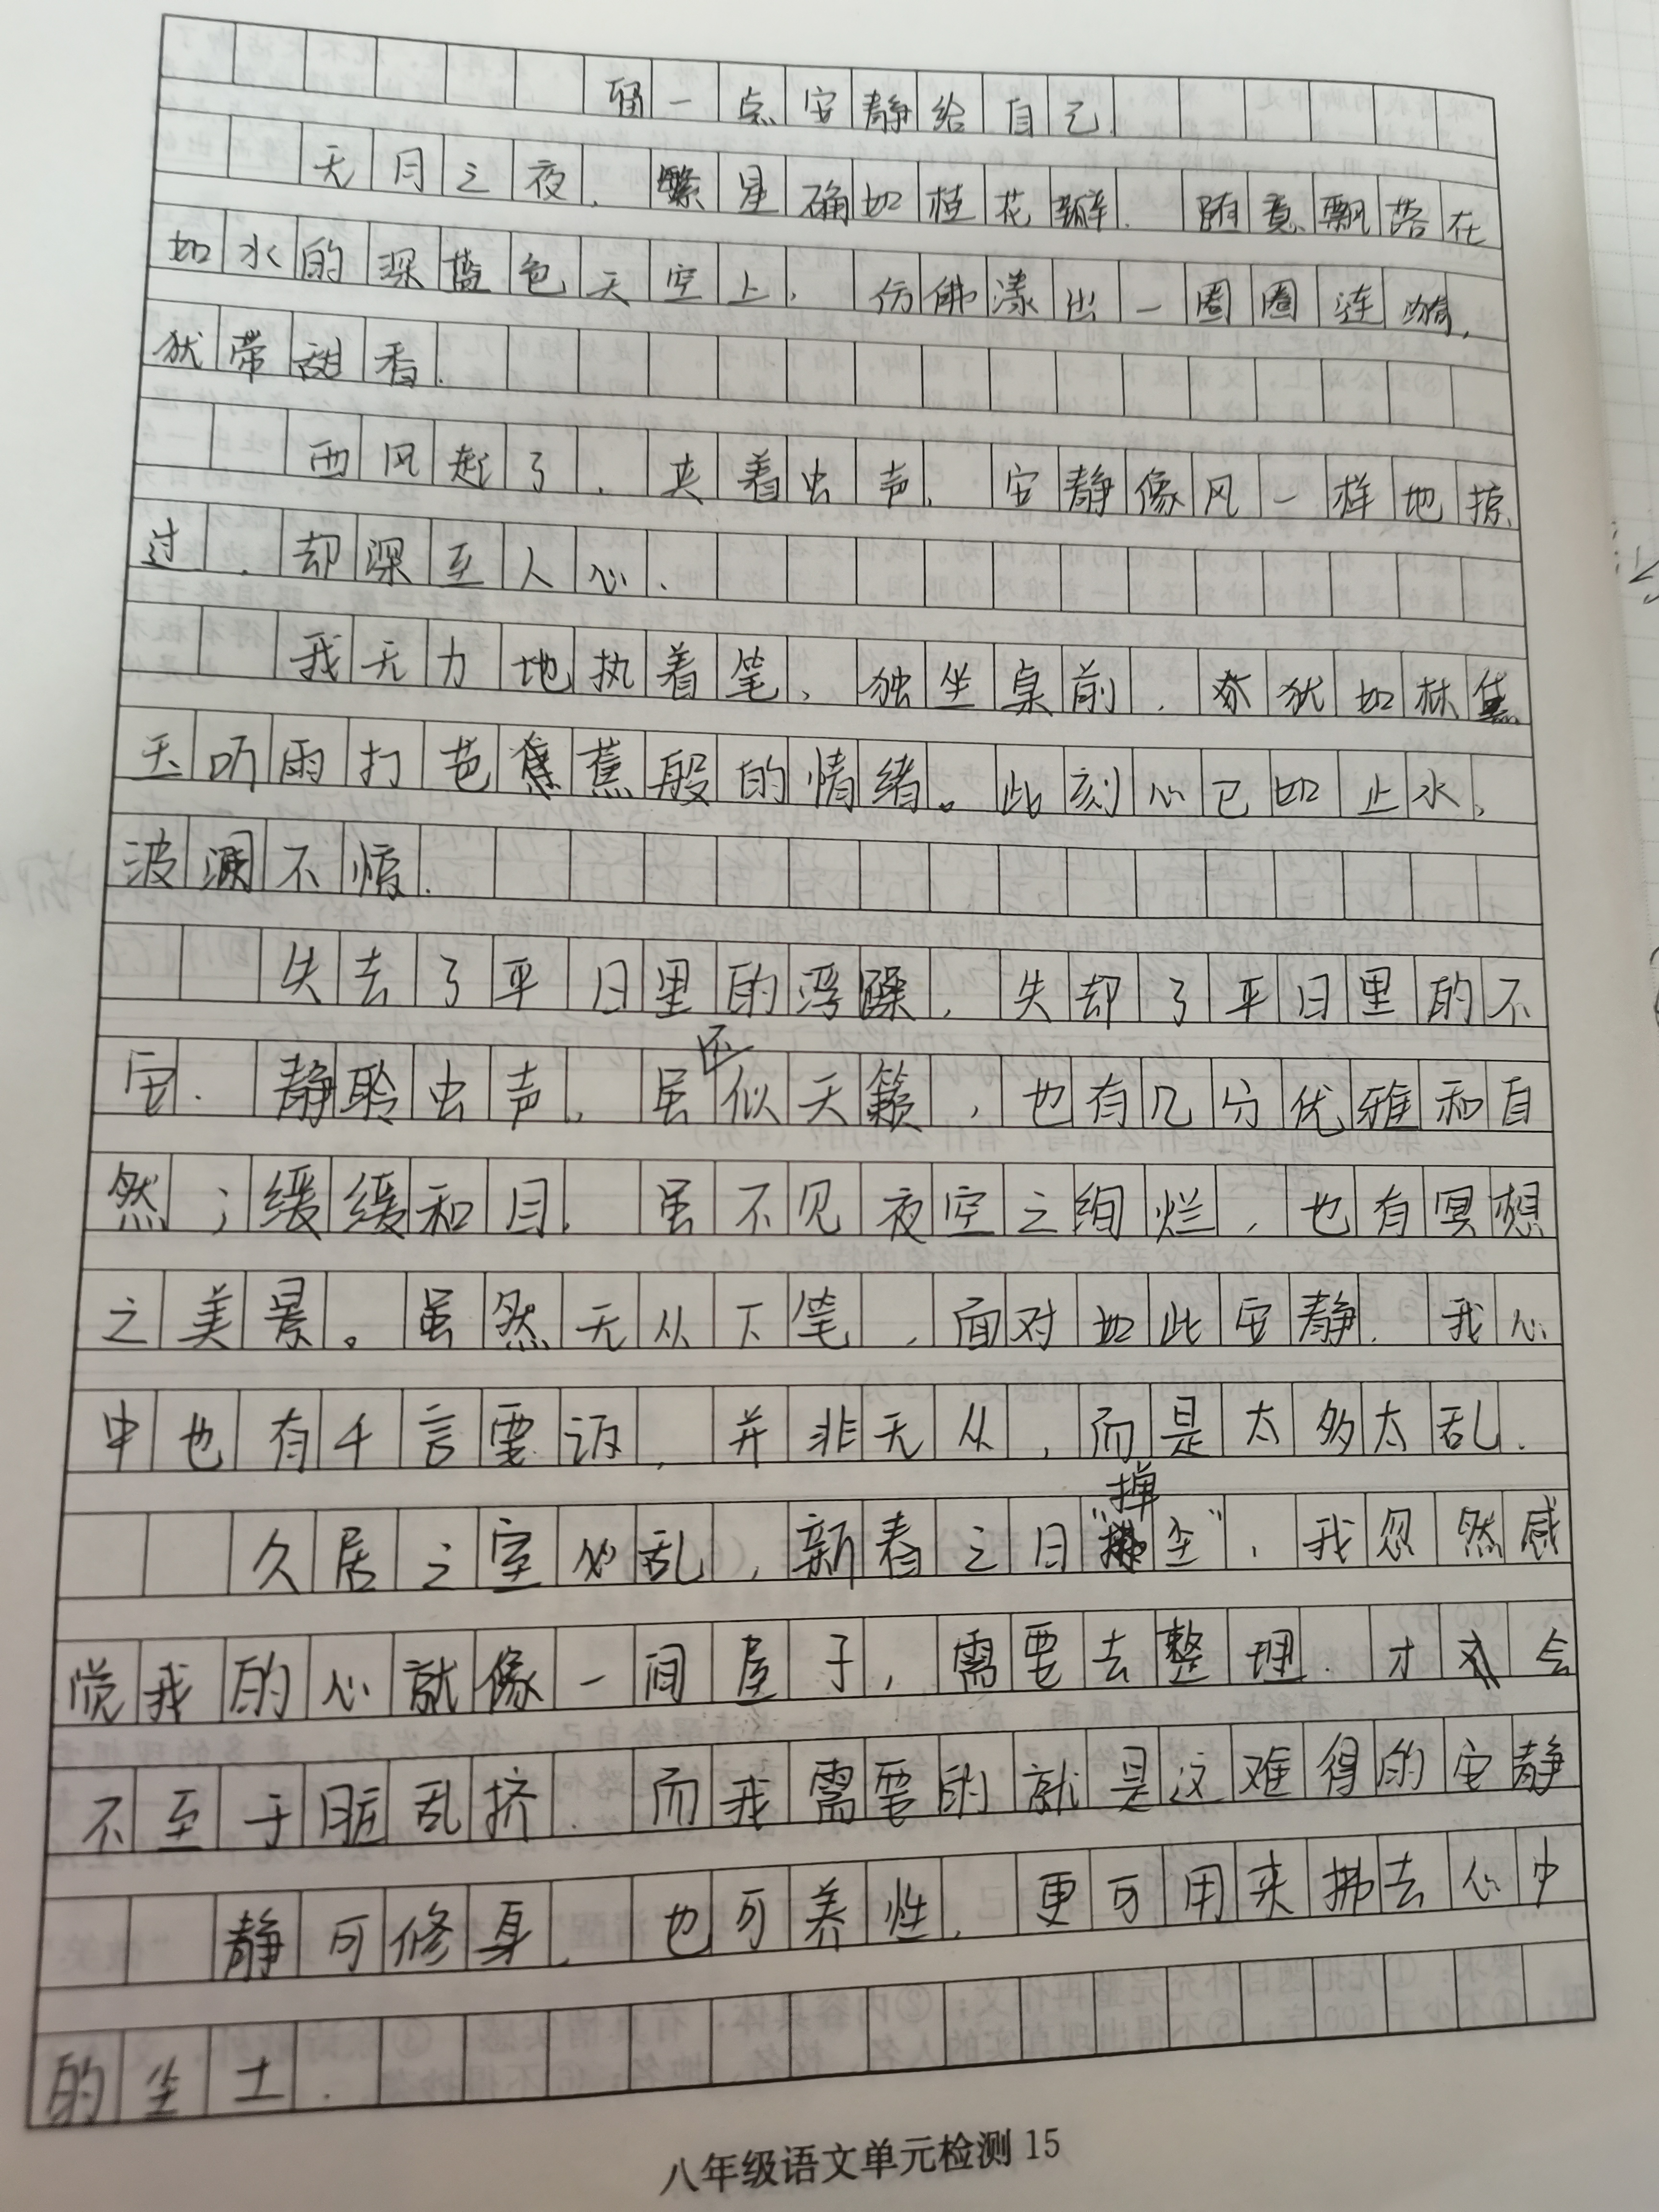 留一点安静给自己
无月之夜，繁星确如桂花瓣，随意飘落在
如水的深蓝色天空上，仿佛漾出一圈圈涟漪，
犹带甜香．
西风起了，夹着虫声，安静像风一样地掠
过，却深至人心．
我无力地执着笔，独坐桌前，犹如林焦
玉听雨打芭蕉般的情绪。此刻心已如止水，
波澜不惊．
失去了平日里的浮躁，失却了平日里的不
安．静聆虫声，虽不似天籁，也有几分优雅和自
然；缓缓和目，虽不见夜空之绚烂，也有冥想
之美景。虽然无从下笔，面对如此安静．我心
中也有千言要诉，并非无从，而是太多太乱．
久居之室必乱，新春之日"掸尘"，我忽然感
觉我的心就像一间屋子，需要去整理．才会
不至于脏乱挤．而我需要的就是这难得的安静
静可修身，也可养性，更可用来拂去心中
的尘土．
八年级语文单元检测 15